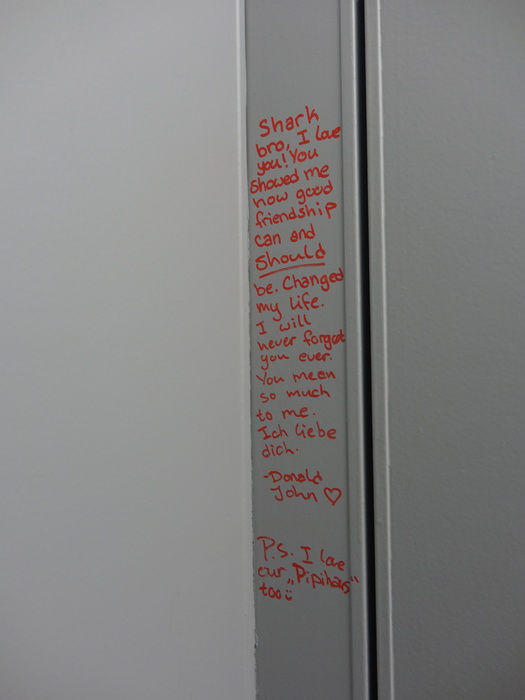 Shark
bro, I love
you! You
showed me
how good
friendship
can and
should
be. Changed
my life.
I will
never forget
you ever.
You mean
so much
to me.
Ich liebe
dich.
-Donald
John ♡
P.S. I love
our „Pipihaus"
too ü